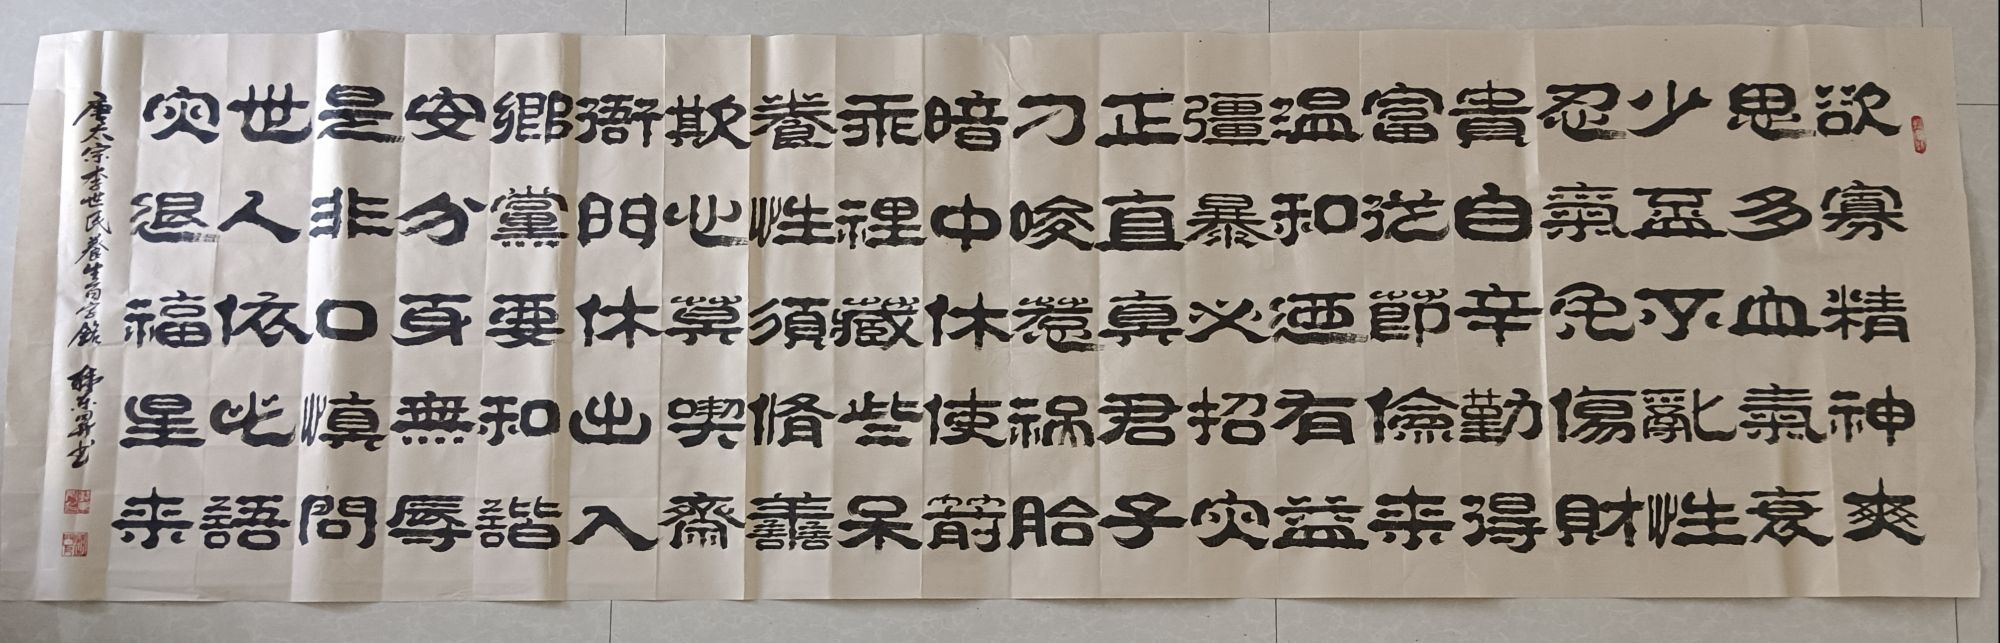 欲寡精神爽
思多血氣衰
少盃不亂性
忍氣免傷財
貴自辛勤得
富從節儉来
温和迺有益
彊暴必招災
正直真君子
刁唆惹祸胎
暗中休使箭
乖裡藏些呆
養性須脩善
欺心莫喫齋
衙門休出入
鄉黨要和諧
安分身無辱
是非口慎問
世人依此語
災退福星来
唐太宗李世民养生百字銘